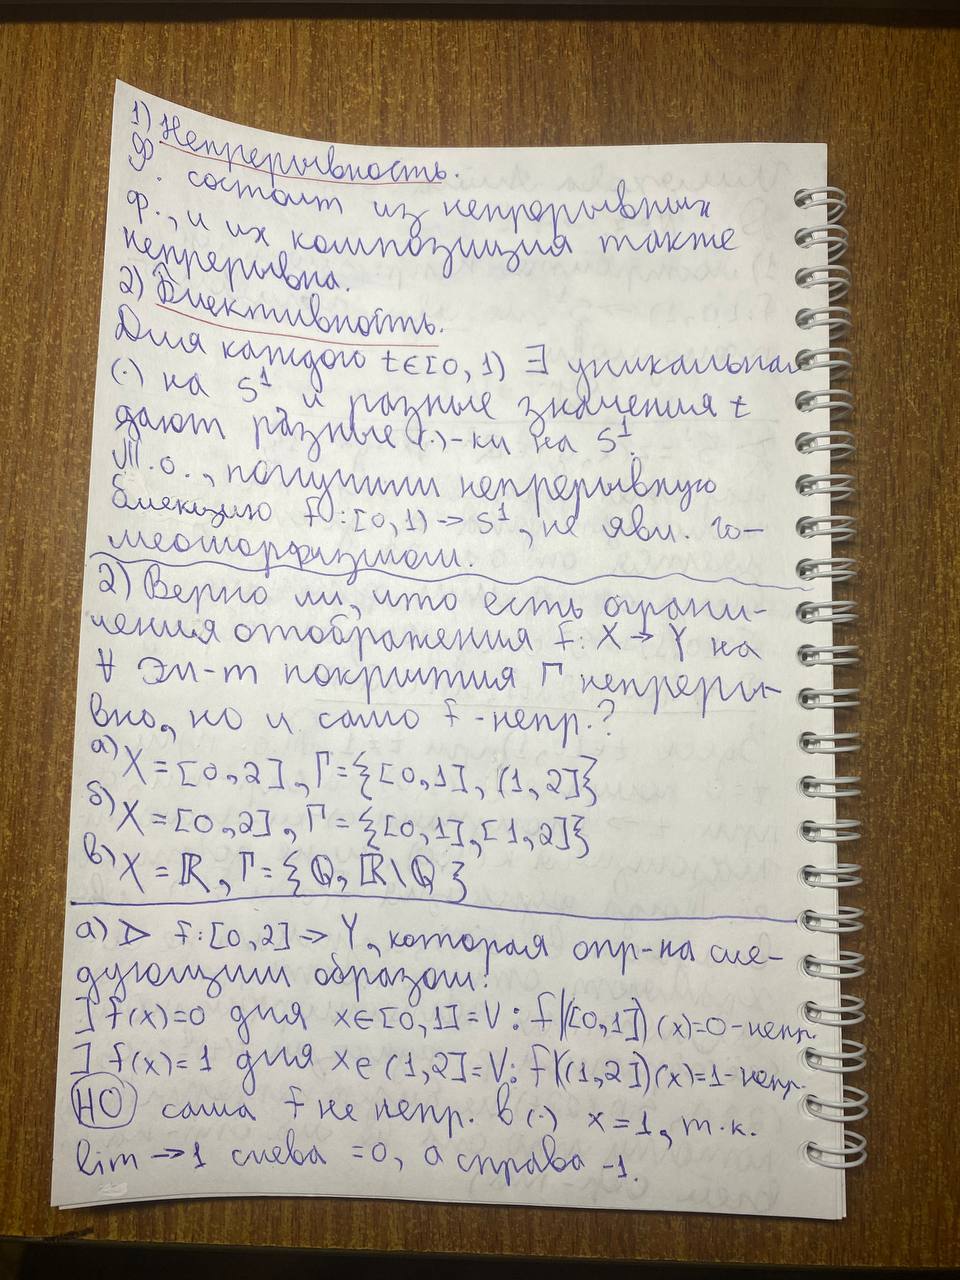 1) Непрерывность.
Ф. состоит из непрерывных
ф., и их композиция также
непрерывна.
2) Биективность.
Для каждого t∈[0,1) ∃ уникальная
(·) на S¹ и разные значения t
дают разные (·)-ки на S¹.
Т.о., получили непрерывную
биекцию f:[0,1)→S¹, не явл. го-
меоморфизмом.
2) Верно ли, что есть ограни-
чения отображения f: X→Y на
∀ эл-т покрытия Γ непреры-
вно, но и само f-непр.?
а) X=[0,2], Γ={[0,1], (1,2]}
б) X=[0,2], Γ={[0,1],[1,2]}
в) X=ℝ, Γ={ℚ, ℝ\ℚ}
а) ▷ f:[0,2]→Y, которая опр-на сле-
дующим образом:
] f(x)=0 для x∈[0,1]=V: f|([0,1])(x)=0-непр.
] f(x)=1 для x∈(1,2]=V: f|((1,2])(x)=1-непр.
НО сама f не непр. в (·) x=1, т.к.
lim→1 слева =0, а справа -1.